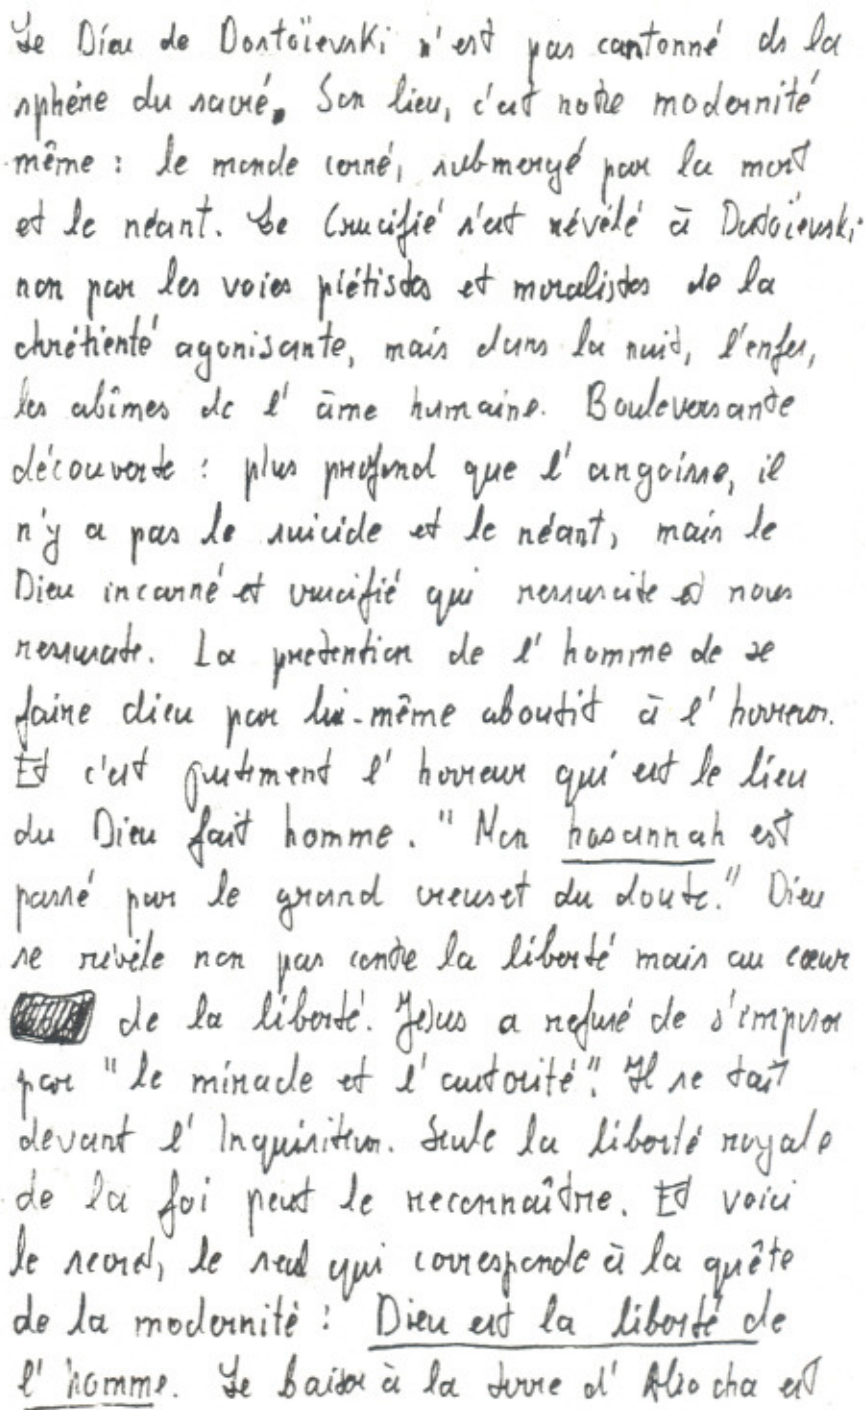 Le Dieu de Dostoïevski n'est pas cantonné ds la
sphère du sacré. Son lieu, c'est notre modernité
même : le monde corné, submergé par la mort
et le néant. Le Crucifié s'est révélé à Dostoïevski
non par les voies piétistes et moralistes de la
chrétienté agonisante, mais dans la nuit, l'enfer,
les abîmes de l'âme humaine. Bouleversante
découverte : plus profond que l'angoisse, il
n'y a pas le suicide et le néant, mais le
Dieu incarné et crucifié qui ressuscite et nous
ressuscite. La prétention de l'homme de se
faire dieu par lui-même aboutit à l'horreur.
Et c'est justement l'horreur qui est le lieu
du Dieu fait homme. "Mon hosannah est
passé par le grand creuset du doute." Dieu
se révèle non pas contre la liberté mais au cœur
de la liberté. Jésus a refusé de s'imposer
par "le miracle et l'autorité". Il se tait
devant l'Inquisiteur. Seule la liberté royale
de la foi peut le reconnaître. Et voici
le secret, le seul qui corresponde à la quête
de la modernité : Dieu est la liberté de
l'homme. Le baiser à la terre d'Aliocha est